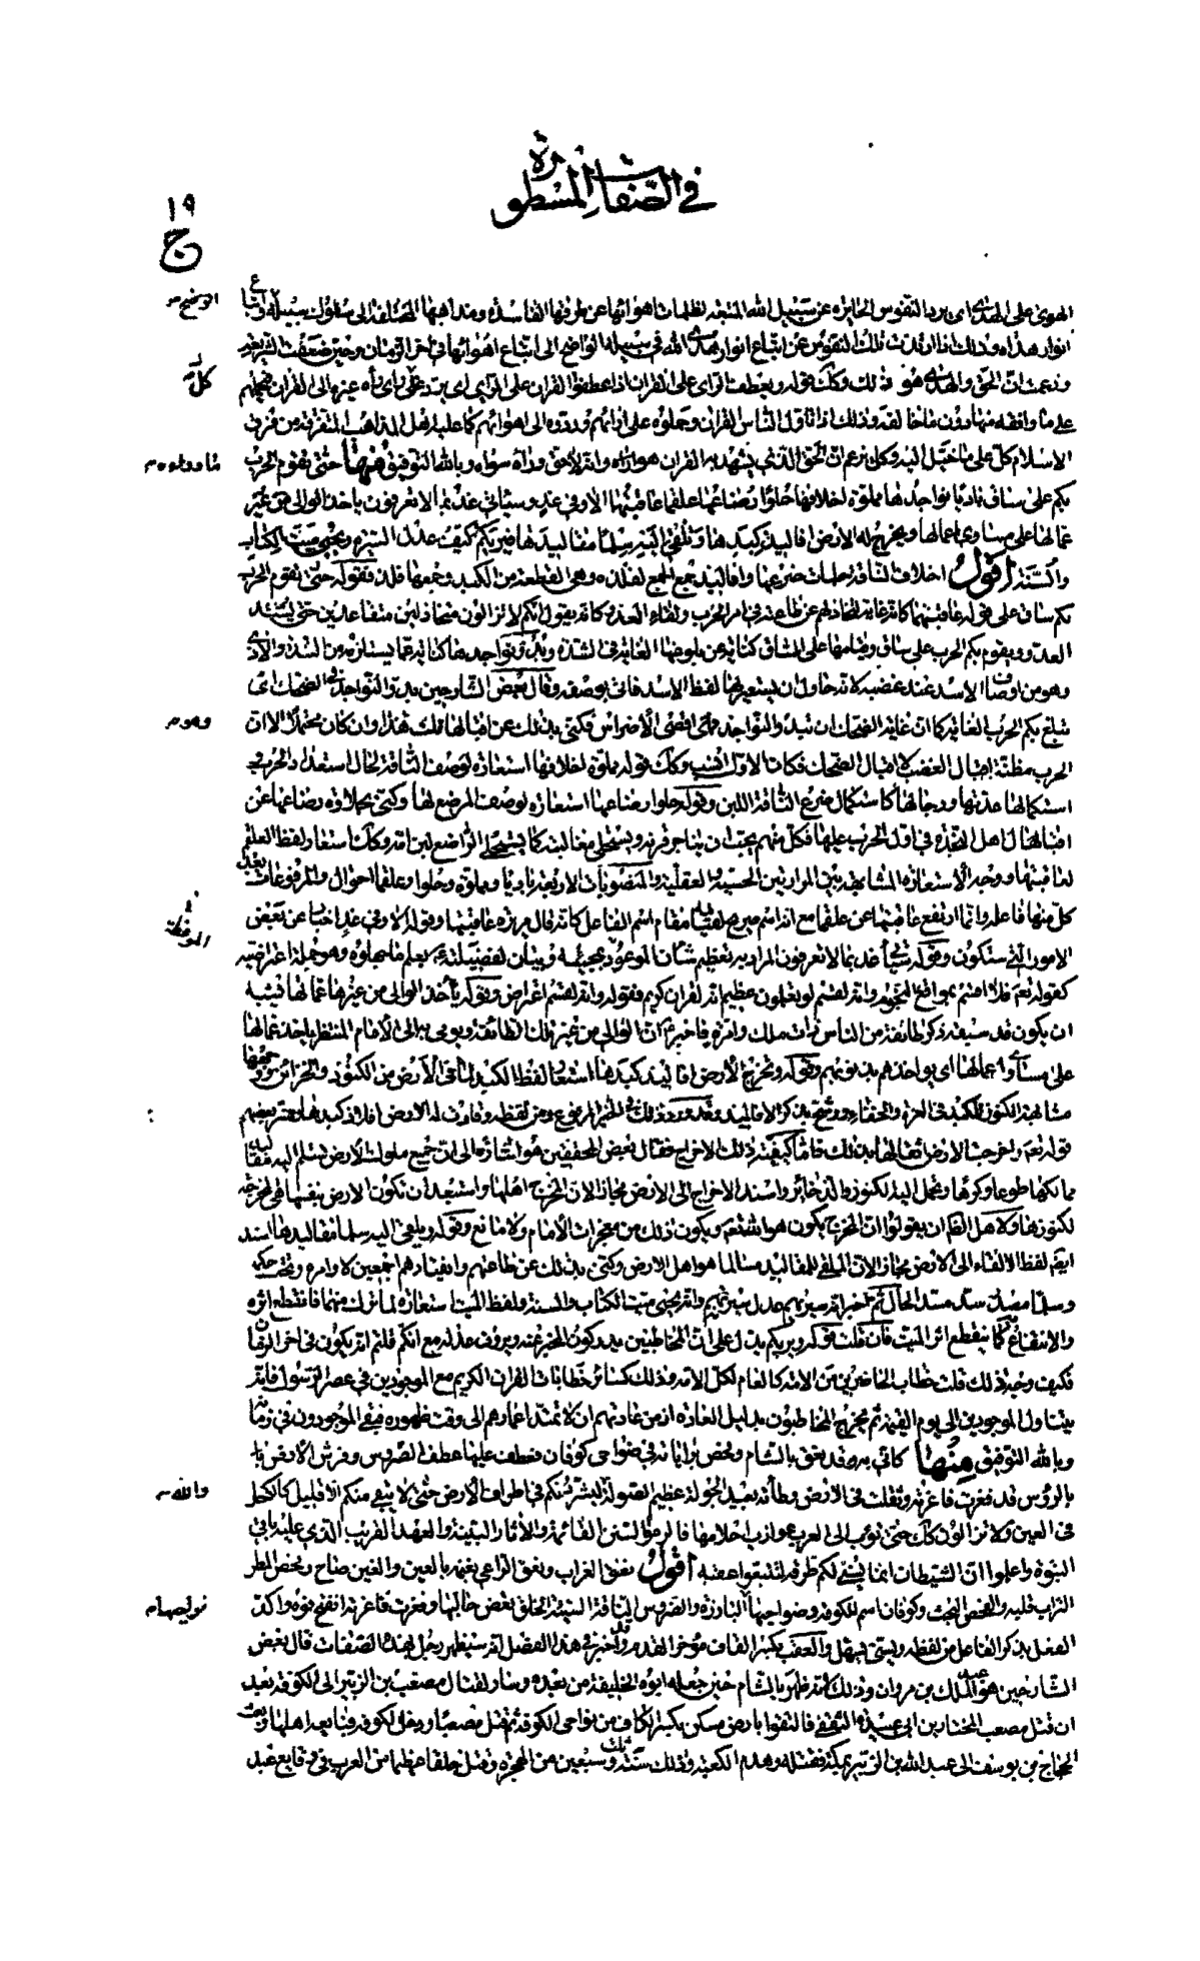 في الصفات المسطورة
١٩
ج
الهوى على الهدى اى يرد النفوس الحايرة عن سبيل الله المتبعة لظلمات اهوائها عن طرقها الفاسدة ومذاهبها المختلفة الى سلوك سبيله واتباع
الوضيح
انوار هداه وذلك اذا ارتدت تلك النفوس عن اتباع انوار هدى الله في سبيله الواضح الى اتباع اهوائها في اخر الزمان وحين ضعفت الشريعة
وزعمت ان الحق والهدى هو ذلك وكك قوله ويعطف الراى على القران اذا عطفوا القران على الراى اى يرد على كل راى راه غيره الى القران فيحملهم
كل
على ما وافقه منها دون ما خالفه وذلك اذا تاول الناس القران وحملوه على ارائهم وردوه الى اهوائهم كما عليه اهل المذاهب المتفرقة من فرق
الاسلام كل على ما خيل اليه وكل يزعم ان الحق الذى يشهد به القران هو ما راه وانه لا حق وراه سواه وبالله التوفيق منها حتى تقوم الحرب
ما وراه
بكم على ساق باديا نواجذها مملوة اخلافها حلوا رضاعها علقما عاقبتها الا وفي غد وسياتي غد بما لا تعرفون ياخذ الوالى من غير
عمالها على مساوى اعمالها وتخرج له الارض افاليذ كبدها وتلقى اليه سلما مقاليدها فيريكم كيف عدل السيرة ويحيى ميت الكتاب
والسنة اقول اخلاف الناقة حلمات ضرعها وافاليذ جمع الجمع لفلذه وهى القطعة من الكبد وجمعها فلذ وقوله حتى تقوم الحرب
بكم ساق على قوله عاقبتها كانه غاية لتخاذلهم عن طاعته في امر الحرب ولقاء العدو كانه يقول انكم لا تزالون متخاذلين متقاعدين حتى يشتد
العدو ويقوم بكم الحرب على ساق وقيامها على الساق كناية عن بلوغها الغاية في الشدة وبدو نواجذها كناية عما يستلزمه من الشدة والاذى
وهو من اوصاف الاسد عند غضبه لانه حاول ان يستعير لها لفظ الاسد فاتى بوصفه وقال بعض الشارحين بدو النواجذ في الضحك اى
تبلغ بكم الحرب الغاية كما ان غاية الضحك ان تبدو النواجذ وهى اقصى الاضراس فكنى بذلك عن اقبالها قلت هذا وان كان محتملا الا ان
وهو
الحرب مظنة اقبال الغضب لا اقبال الضحك فكان الاول انسب وكك قوله مملوة اخلافها استعارة لوصف الناقة لحال استعداد الحرب و
استكمالها عدتها ورجالها كاستكمال ضرع الناقة اللبن وقوله حلوا رضاعها استعارة لوصف المرضع لها وكنى بحلاوة رضاعها عن
اقبالها لان اهل النجدة في اول الحرب عليها فكل منهم يحب ان يناجز قرنه ويستحلى مغالبته كما يستحلى الراضع لبن امه وكك استعار لفظ العلقم
لعاقبتها ووجه الاستعارة المشابهة بين المرارتين الحسية والعقلية والمنصوبات الاربعة باديا ومملوة وحلوا وعلقما احوال والمرفوعات بعد
كل منها فاعله وانما ارتفع عاقبتها عن علقما مع انه اسم صريح لقيامه مقام اسم الفاعل كانه قال مريرة عاقبتها وقوله الا وفي غد اخبار عن بعض
الامور التي ستكون وقوله سياتى غد بما لا تعرفون المراد به تعظيم شان الموعود بمجيئه وبيان لفضيلته بعلم ما جهلوه وهو جملة اعتراضية
كقوله تعالى فلا اقسم بمواقع النجوم وانه لقسم لو تعلمون عظيم انه لقران كريم فقوله وانه لقسم اعتراض وقوله ياخذ الوالى من غيرها عمالها فيشبه
ان يكون قد سبق ذكر طائفة من الناس ذات ملك وامرة فاخبر ان الوالى من غير تلك الطائفة ويومى به الى الامام المنتظر ياخذ عمالها
على مساوى اعمالها اى يواخذهم بذنوبهم وقوله وتخرج الارض افاليذ كبدها استعار لفظ الكبد لما في الارض من الكنوز والخزائن ووجهها
مشابهة الكنوز للكبد في العزة والخفاء ورشح بذكر الافاليذ وقد ورد ذلك في الخبر المرفوع ومن لفظه وقاءت له الارض افلاذ كبدها وفسر بعضهم
قوله تعالى واخرجت الارض اثقالها بذلك فاما كيفية ذلك الاخراج فقال بعض المحققين هو اشارة الى ان جميع ملوك الارض تسلم اليه مقاليد
ممالكها طوعا وكرها وتحمل اليه الكنوز والذخائر واسند الاخراج الى الارض مجازا لان المخرج اهلها واستبعد ان تكون الارض بنفسها هي المخرجة
لكنوزها ولاهل الظاهر ان يقولوا ان المخرج يكون هو الله تعالى ويكون ذلك من معجزات الامام ولا مانع وقوله وتلقى اليه سلما مقاليدها اسند
ايضا لفظ الالقاء الى الارض مجازا لان الملقى للمقاليد مسالما هو اهل الارض وكنى بذلك عن طاعتهم وانقيادهم اجمعين لاوامره وتحت حكمه
وسلما مصدر سد مسد الحال ثم اخبر انه سيريهم عدل سيرتهم وانه يحيى ميت الكتاب والسنة ولفظ الميت استعارة لما ترك منهما فانقطع اثره
والانتفاع به كما ينقطع اثر الميت فان قلت قوله ويريكم يدل على ان المخاطبين يدركون المخبر عنه ويرون عدله مع انكم قلتم انه يكون في اخر الزمان
فكيف وجه ذلك قلت خطاب الحاضرين من الامة كالعام لكل الامة وذلك كسائر خطابات القران الكريم مع الموجودين في عصر الرسول فانه
يتناول الموجودين الى يوم القيمة ثم يخرج المخاطبون بدليل العادة اذ من عادتهم ان لا تمتد اعمارهم الى وقت ظهوره فبقى الموجودون في زمانه
وبالله التوفيق منها كانى به قد نعق بالشام وفحص براياته في ضواحى كوفان فعطف عليها عطف الضروس وفرش الارض
بالرؤس قد فغرت فاغرته وثقلت في الارض وطأته بعيد الجولة عظيم الصولة والله ليشردنكم في اطراف الارض حتى لا يبقى منكم الا قليل كالكحل
والله
في العين فلا تزالون كك حتى تؤب الى العرب عوازب احلامها فالزموا السنن القائمة والاثار البينة والعهد القريب الذى عليه باقى
النبوة واعلموا ان الشيطان انما يسنى لكم طرقه لتتبعوا عقبه اقول نعق الغراب ونعق الراعى بغنمه بالعين والغين صاح وفحص المطر
التراب قلبه والفحص البحث وكوفان اسم للكوفة وضواحيها البارزة والضروس الناقة السيئة الخلق تعض حالبها وفغرت فاغرته انفتح فوه واكد
الفعل بذكر الفاعل من لفظه ويسنى يسهل والعقب بكسر القاف مؤخر القدم واخبر في هذا الفصل انه سيظهر رجل بهذه الصفات قال بعض
الشارحين هو عبد الملك بن مروان وذلك لانه ظهر بالشام حين جعله ابوه الخليفة من بعده وسار لقتال مصعب بن الزبير الى الكوفة بعد
ان قتل مصعب المختار بن ابى عبيدة الثقفى فالتقوا بارض مسكن بكسر الكاف من نواحى الكوفة ثم قتل مصعبا ودخل الكوفة فبايعه اهلها وبعث
الحجاج بن يوسف الى عبد الله بن الزبير بمكة فقتله وهدم الكعبة وذلك سنة ثلث وسبعين من الهجرة وقتل خلقا عظيما من العرب في وقايع عبد